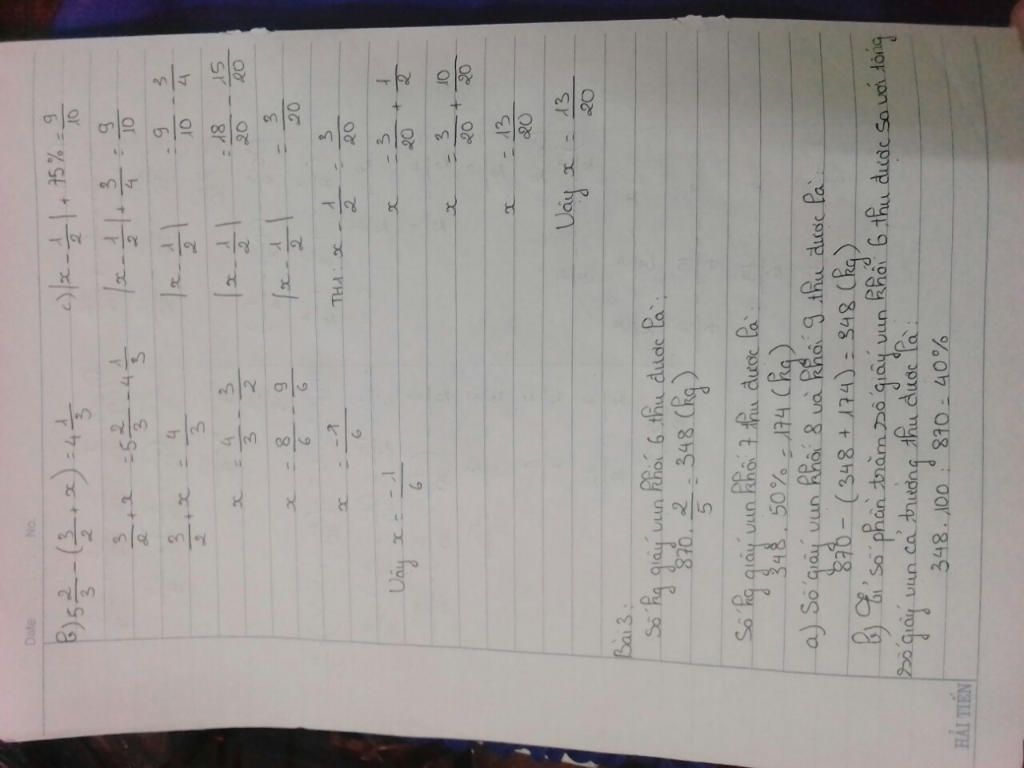 Date No.
b) 5 2/3 - (3/2 + x) = 4 1/3
3/2 + x = 5 2/3 - 4 1/3
3/2 + x = 4/3
x = 4/3 - 3/2
x = 8/6 - 9/6
x = -1/6
Vậy x = -1/6
c) |x - 1/2| + 75% = 9/10
|x - 1/2| + 3/4 = 9/10
|x - 1/2| = 9/10 - 3/4
|x - 1/2| = 18/20 - 15/20
|x - 1/2| = 3/20
THI: x - 1/2 = 3/20
x = 3/20 + 1/2
x = 3/20 + 10/20
x = 13/20
Vậy x = 13/20
Bài 3:
Số kg giấy vụn khối 6 thu được là:
870 . 2/5 = 348 (kg)
Số kg giấy vụn khối 7 thu được là:
348 . 50% = 174 (kg)
a) Số giấy vụn khối 8 và khối 9 thu được là:
870 - (348 + 174) = 348 (kg)
b) Tỉ số phần trăm số giấy vụn khối 6 thu được so với tổng
số giấy vụn cả trường thu được là:
348 . 100 : 870 = 40%
HẢI TIẾN